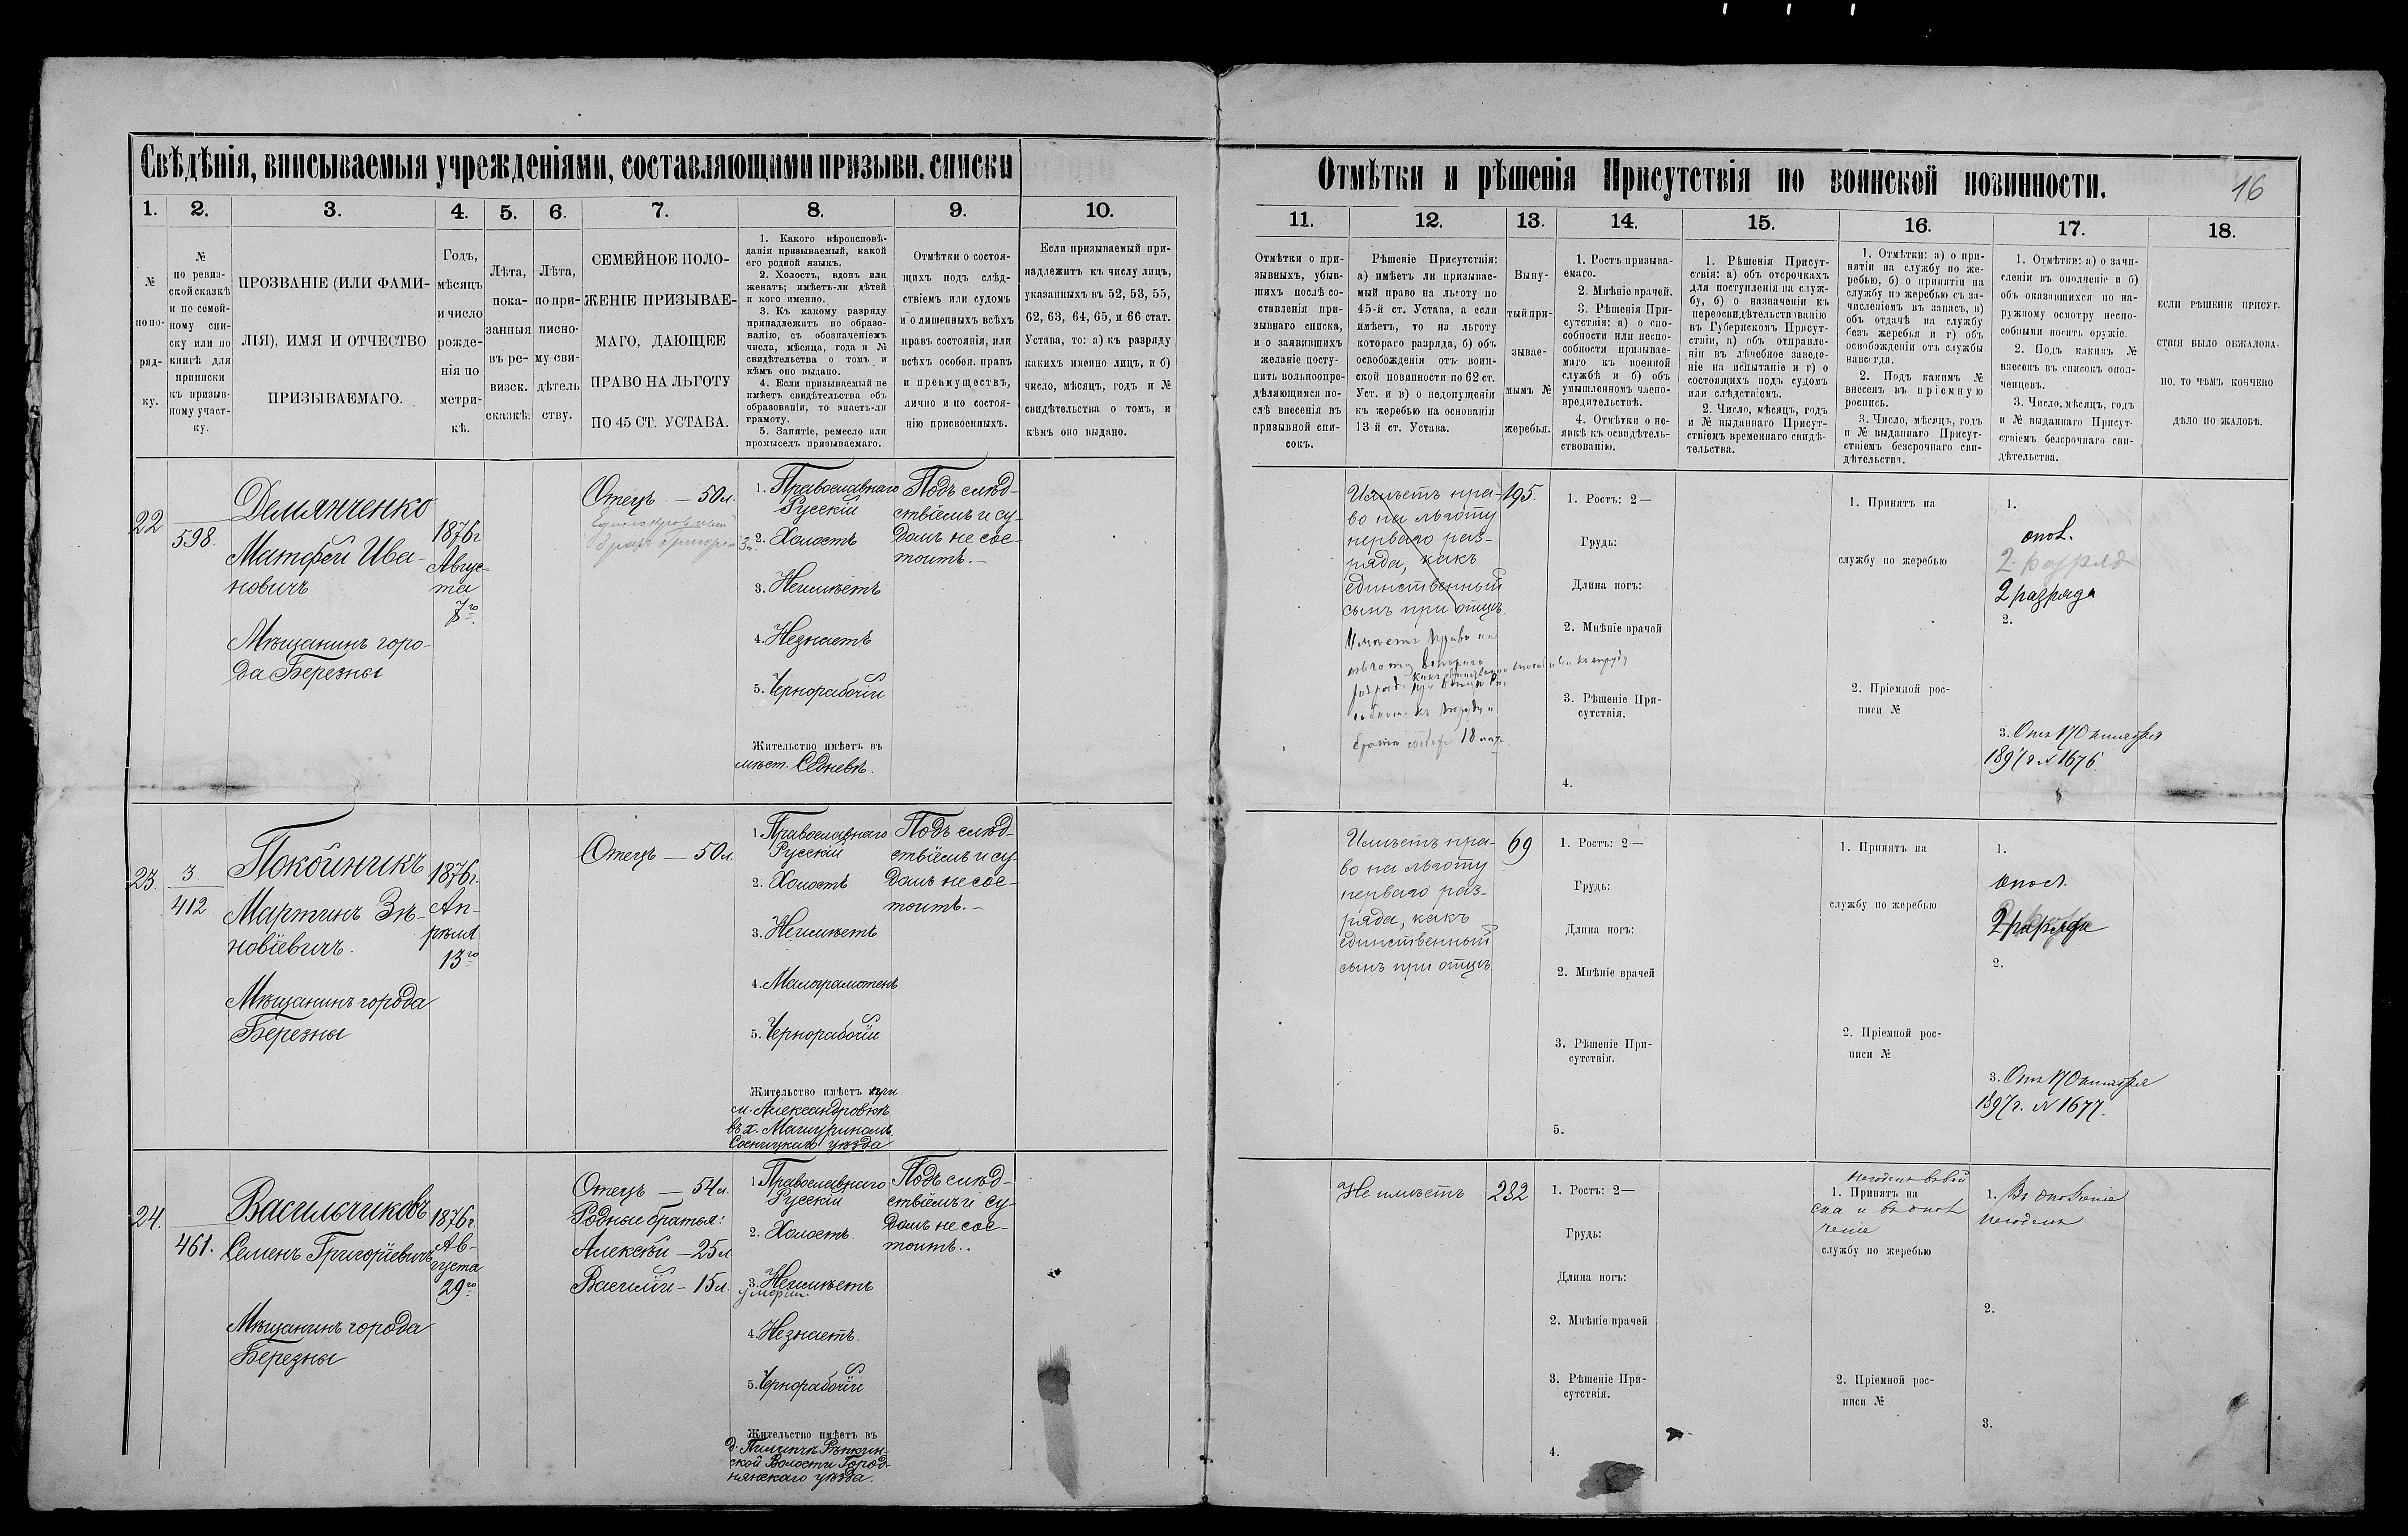 Свѣдѣнія, вписываемыя учрежденіями, составляющими призывн. списки
1.
2.
3.
4.
5.
6.
7.
8.
9.
10.
№
по по-
ряд-
ку.
№
по ревиз-
ской сказкѣ
и по семей-
ному спи-
ску или по
книгѣ для
приписки
къ призыв-
ному участ-
ку.
ПРОЗВАНІЕ (ИЛИ ФАМИ-
ЛІЯ), ИМЯ И ОТЧЕСТВО
ПРИЗЫВАЕМАГО.
Годъ,
мѣсяцъ
и число
рожде-
нія по
метри-
кѣ.
Лѣта,
пока-
занныя
въ ре-
визск.
сказкѣ.
Лѣта,
по при-
писно-
му сви-
дѣтель
ству.
СЕМЕЙНОЕ ПОЛО-
ЖЕНІЕ ПРИЗЫВАЕ-
МАГО, ДАЮЩЕЕ
ПРАВО НА ЛЬГОТУ
ПО 45 СТ. УСТАВА.
1. Какого вѣроисповѣ-
данія призываемый, какой
его родной языкъ.
2. Холостъ, вдовъ или
женатъ; имѣетъ-ли дѣтей
и кого именно.
3. Къ какому разряду
принадлежитъ по образо-
ванію, съ обозначеніемъ
числа, мѣсяца, года и №
свидѣтельства о томъ и
кѣмъ оно выдано.
4. Если призываемый не
имѣетъ свидѣтельства объ
образованіи, то знаетъ-ли
грамоту.
5. Занятіе, ремесло или
промыселъ призываемаго.
Отмѣтки о состоя-
щихъ подъ слѣд-
ствіемъ или судомъ
и о лишенныхъ всѣхъ
правъ состоянія, или
всѣхъ особен. правъ
и преимуществъ,
лично и по состоя-
нію присвоенныхъ.
Если призываемый при-
надлежитъ къ числу лицъ,
указанныхъ въ 52, 53, 55,
62, 63, 64, 65, и 66 стат.
Устава, то: а) къ разряду
какихъ именно лицъ, и б)
число, мѣсяцъ, годъ и №
свидѣтельства о томъ, и
кѣмъ оно выдано.
22
598.
Демянченко
Матфей Ива-
новичъ
Мѣщанинъ горо-
да Березны
1876г
Авгус-
та
7го
Отецъ. — 50 л.
1. Православнаго
Русскій
2. Холостъ
3. Неимѣетъ
4. Незнаетъ
5. Чернорабочій
Жительство имѣетъ въ
мѣст. Седневѣ.
Подъ слѣд-
ствіемъ и су-
домъ не сос-
тоитъ.—
23.
3
412
Покойникъ
Мартинъ Зѣ-
новіевичъ.
Мѣщанинъ города
Березны
1876г.
Ап-
рѣля
13го
Отецъ — 50 л.
1 Православнаго
Русскій
2. Холостъ
3. Неимѣетъ
4. Малограмотенъ
5. Чернорабочій
Жительство имѣетъ при
м. Александровкѣ
въ х.
Сосницкаго уѣзда
Подъ слѣд-
ствіемъ и су-
домъ не сос-
тоитъ.—
24.
461.
Васильчиковъ
Семенъ Григоріевичъ
Мѣщанинъ города
Березны
1876г.
Ав-
густа
29го
Отецъ — 54 л.
Родные братья:
Алексѣй — 25 л
Василій — 15 л.
1 Православнаго
Русскій
2. Холостъ
3. Неимѣетъ
4. Незнаетъ.
5. Чернорабочій
Жительство имѣетъ въ
ской Волости Город-
нянскаго уѣзда.
Подъ слѣд-
ствіемъ и су-
домъ не сос-
тоитъ..
Отмѣтки и рѣшенія Присутствія по воинской повинности.
16
11.
12.
13.
14.
15.
16.
17.
18.
Отмѣтки о при-
зывныхъ, убыв-
шихъ послѣ со-
ставленія при-
зывнаго списка,
и о заявившихъ
желаніе посту-
пить вольноопре-
дѣляющимся по-
слѣ внесенія въ
призывной спи-
сокъ.
Рѣшеніе Присутствія:
а) имѣетъ ли призывае-
мый право на льготу по
45-й ст. Устава, а если
имѣетъ, то на льготу
котораго разряда, б) объ
освобожденіи отъ воин-
ской повинности по 62 ст.
Уст. и в) о недопущеніи
къ жеребью на основаніи
13 й ст. Устава.
Выну-
тый при-
зывае-
мымъ №
жеребья.
1. Ростъ призыва-
емаго.
2. Мнѣніе врачей.
3. Рѣшенія При-
сутствія: а) о спо-
собности или неспо-
собности призывае-
маго къ военной
службѣ и б) объ
умышленномъ члено-
вредительствѣ.
4. Отмѣтки о не-
явкѣ къ освидѣтель-
ствованію.
1. Рѣшенія Присут-
ствія: а) объ отсрочкахъ
для поступленія на служ-
бу, б) о назначеніи къ
переосвидѣтельствованію
въ Губернскомъ Присут-
ствіи, в) объ отправле-
ніи въ лѣчебное заведе-
ніе на испытаніе и г) о
состоящихъ подъ судомъ
или слѣдствіемъ.
2. Число, мѣсяцъ, годъ
и № выданнаго Присут-
ствіемъ временнаго свидѣ-
тельства.
1. Отмѣтки: а) о при-
нятіи на службу по же-
ребью, б) о принятіи на
службу по жеребью съ за-
численіемъ въ запасъ, в)
объ отдачѣ на службу
безъ жеребья и г) объ
освобожденіи отъ службы
навсегда.
2. Подъ какимъ №
внесенъ въ пріемную
роспись.
3. Число, мѣсяцъ, годъ
и № выданнаго Присут-
ствіемъ безсрочнаго сви-
дѣтельства.
1. Отмѣтки: а) о зачи-
сленіи въ ополченіе и б)
объ оказавшихся по на-
ружному осмотру неспо-
собными носить оружіе.
2. Подъ какимъ №
внесенъ въ списокъ опол-
ченцевъ.
3. Число, мѣсяцъ, годъ
и № выданнаго Присут-
ствіемъ безсрочнаго сви-
дѣтельства.
ЕСЛИ РѢШЕНІЕ ПРИСУТ-
СТВІЯ БЫЛО ОБЖАЛОВА-
НО, ТО ЧѢМЪ КОНЧЕНО
ДѢЛО ПО ЖАЛОБѢ.
Имѣетъ пра-
во на льготу
перваго раз-
ряда, какъ
единственный
сынъ при отцѣ
195.
1. Ростъ: 2—
Грудь:
Длина ногъ:
2. Мнѣніе врачей
3. Рѣшеніе При-
сутствія.
4.
1. Принятъ на
службу по жеребью
2. Пріемной рос-
писи №
1.
опол.
2 разряд
2 разряда
2.
3. Отъ 17 Октября
1897г № 1676.
Имѣетъ пра-
во на льготу
перваго раз-
ряда, какъ
единственный
сынъ при отцѣ
69
1. Ростъ: 2—
Грудь:
Длина ногъ:
2. Мнѣніе врачей
3. Рѣшеніе При-
сутствія.
5.
1. Принятъ на
службу по жеребью
2. Пріемной рос-
писи №
1.
опол.
2 разряда
2.
3. Отъ 17 Октября
1897г. № 1677.
Не имѣетъ
282
1. Ростъ: 2—
Грудь:
Длина ногъ:
2. Мнѣніе врачей
3. Рѣшеніе При-
сутствія.
4.
1. Принятъ на
службу по жеребью
2. Пріемной рос-
писи №
1. Въ ополченіе
негоденъ
2.
3.